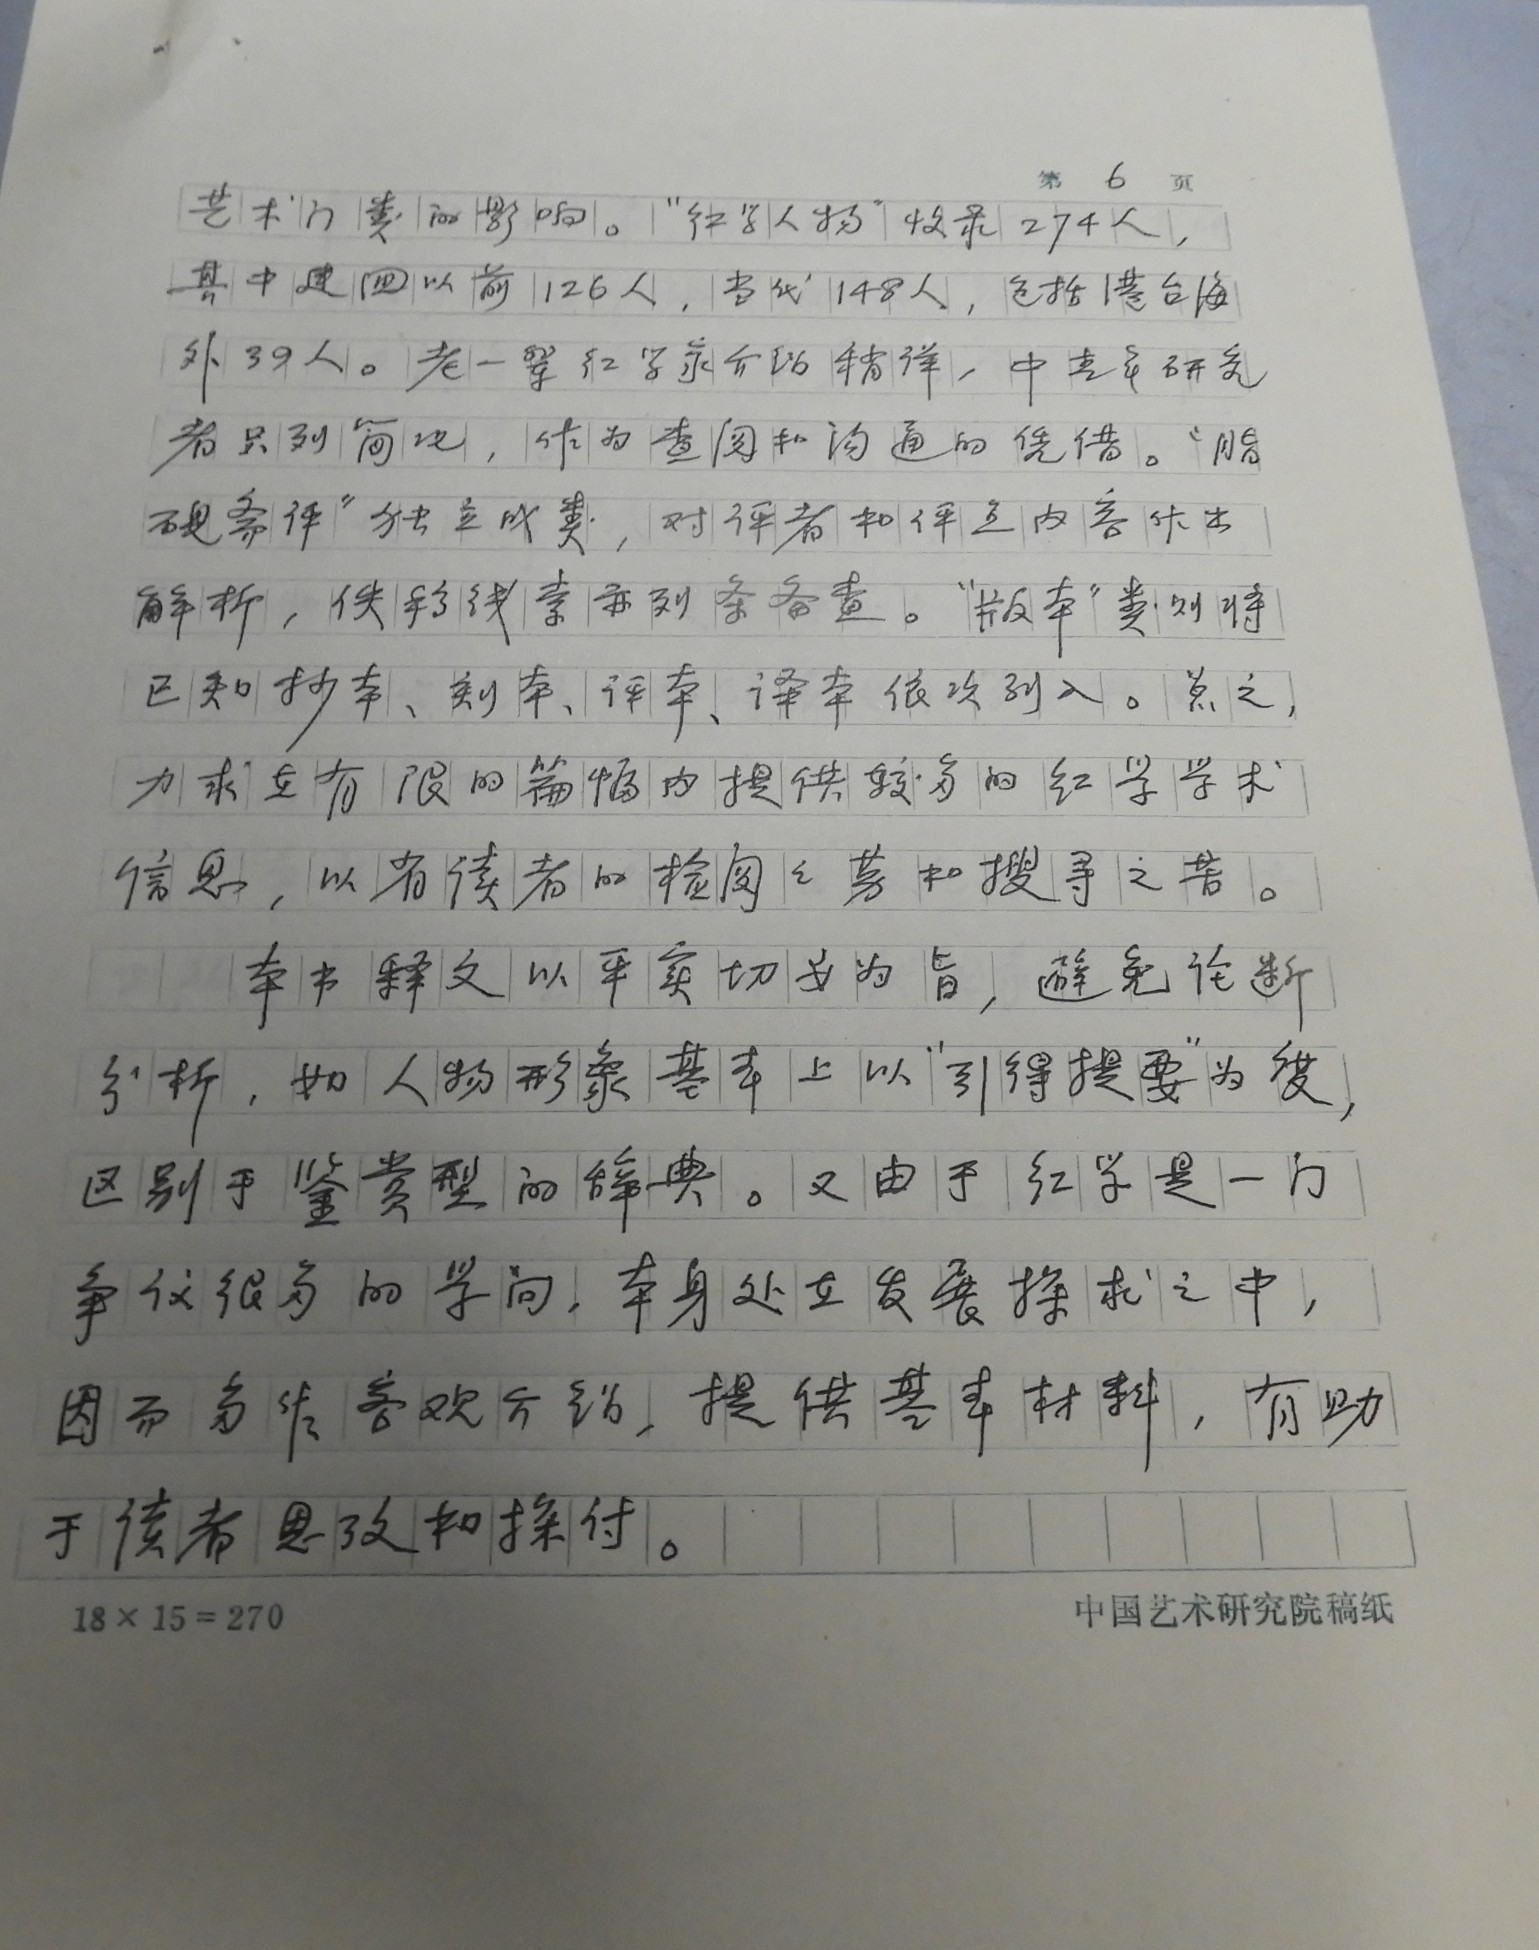 第 6 页
艺术门类的影响。“红学人物”收录274人，
其中建国以前126人，当代148人，包括港台海
外39人。老一辈红学家介绍稍详，中青年研究
者只列简况，作为查阅和沟通的凭借。“脂
砚斋评”独立成类，对评者和评点内容作出
解析，佚稿线索亦列条备查。“版本”类则将
已知抄本、刻本、评本、译本依次列入。总之，
力求在有限的篇幅内提供较多的红学学术
信息，以省读者的检阅之劳和搜寻之苦。
本书释文以平实切要为旨，避免论断
分析，如人物形象基本上以“引得提要”为度，
区别于鉴赏型的辞典。又由于红学是一门
争议很多的学问，本身处在发展探求之中，
因而多作客观介绍，提供基本材料，有助
于读者思考和探讨。
18×15=270
中国艺术研究院稿纸